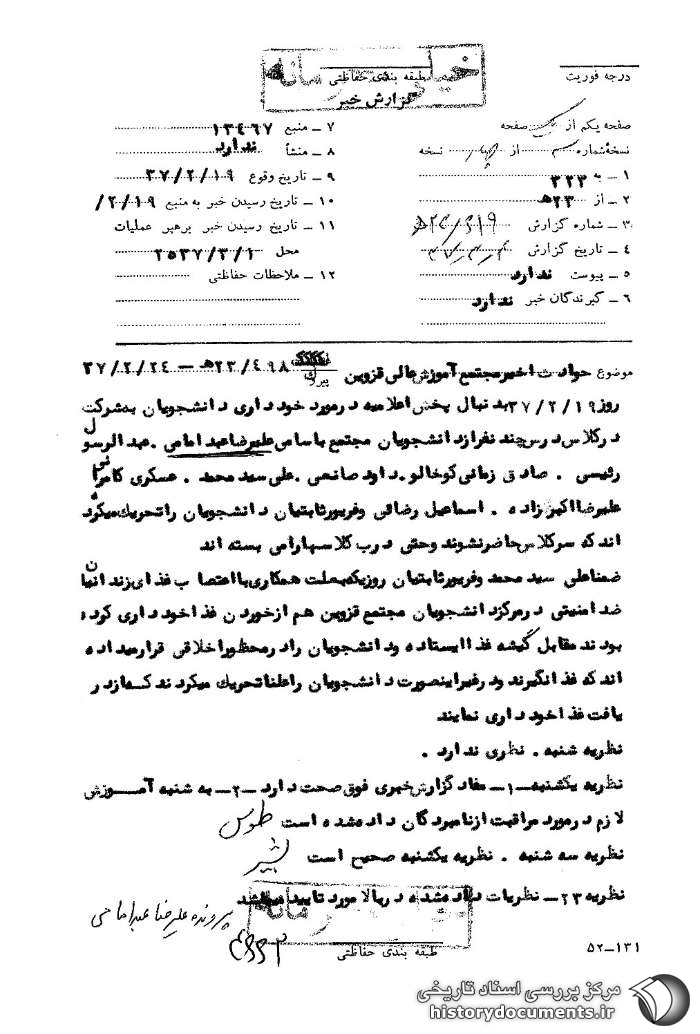 درجه فوریت
طبقه بندی حفاظتی
خیلی محرمانه
گزارش خبر
صفحه یکم از یک صفحه
نسخه شماره از چهار نسخه
۱ ـ به ۳۲۳
۲ ـ از ۲۳ھ
۳ ـ شماره گزارش
۴ ـ تاریخ گزارش
۵ ـ پیوست ندارد
۶ ـ گیرندگان خبر ندارد
۷ ـ منبع ۱۳۴۶۷
۸ ـ منشأ ندارد
۹ ـ تاریخ وقوع ۳۷/۲/۱۹
۱۰ ـ تاریخ رسیدن خبر به منبع ۲/۱۹/
۱۱ ـ تاریخ رسیدن خبر برهبر عملیات
محل ۲۵۳۷/۳/۱
۱۲ ـ ملاحظات حفاظتی
موضوع حوادث اخیر مجتمع آموزش عالی قزوین پیرو ۲۳/۴۹۸ھ ـ ۳۷/۲/۲۴
روز ۳۷/۲/۱۹ بدنبال پخش اعلامیه درمورد خودداری دانشجویان بشرکت
درکلاس درس چند نفر از دانشجویان مجتمع باسامی علیرضا عبد امامی . عبدالرسول
رئیسی . صادق زمانی کوخالو . داود صانعی . علی سید محمد . عسکری کامرانی
علیرضا اکبرزاده . اسماعیل رضائی وفریور ثابتیان دانشجویان راتحریک میکرده
اند که سرکلاس حاضر نشوند وحتی درب کلاسهارامی بسته اند
ضمنا علی سید محمد وفریور ثابتیان روزیکه بعلت همکاری با اعتصاب غذای زندانیان
ضد امنیتی درمرکز دانشجویان مجتمع قزوین هم ازخوردن غذا خودداری کرده
بودند مقابل گیشه غذا ایستاده و دانشجویان رادرمحظور اخلاقی قرار میداده
اند که غذا نگیرند ودرغیر اینصورت دانشجویان راعلنا تحریک میکردند که از در
یافت غذا خودداری نمایند
نظریه شنبه . نظری ندارد .
نظریه یکشنبه ـ ۱ ـ مفاد گزارش خبری فوق صحت دارد ـ ۲ ـ به شنبه آمـوزش
لازم درمورد مراقبت ازنامبردگان داده شده است طوس
نظریه سه شنبه . نظریه یکشنبه صحیح است بشیر
نظریه ۲۳ ـ نظریات داده شده دربالا مورد تایید میباشد
پرونده علیرضا عبدامامی
طبقه بندی حفاظتی
۵۲ـ۱۳۱
مرکز بررسی اسناد تاریخی
historydocuments.ir